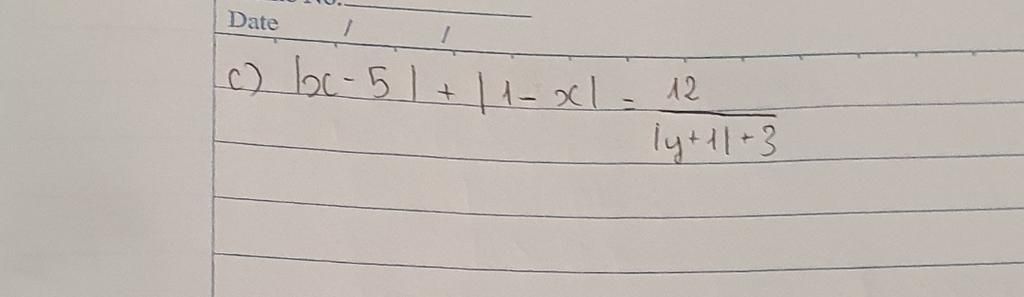 Date / /
c) |x - 5| + |1 - x| = 12 / (|y + 1| + 3)